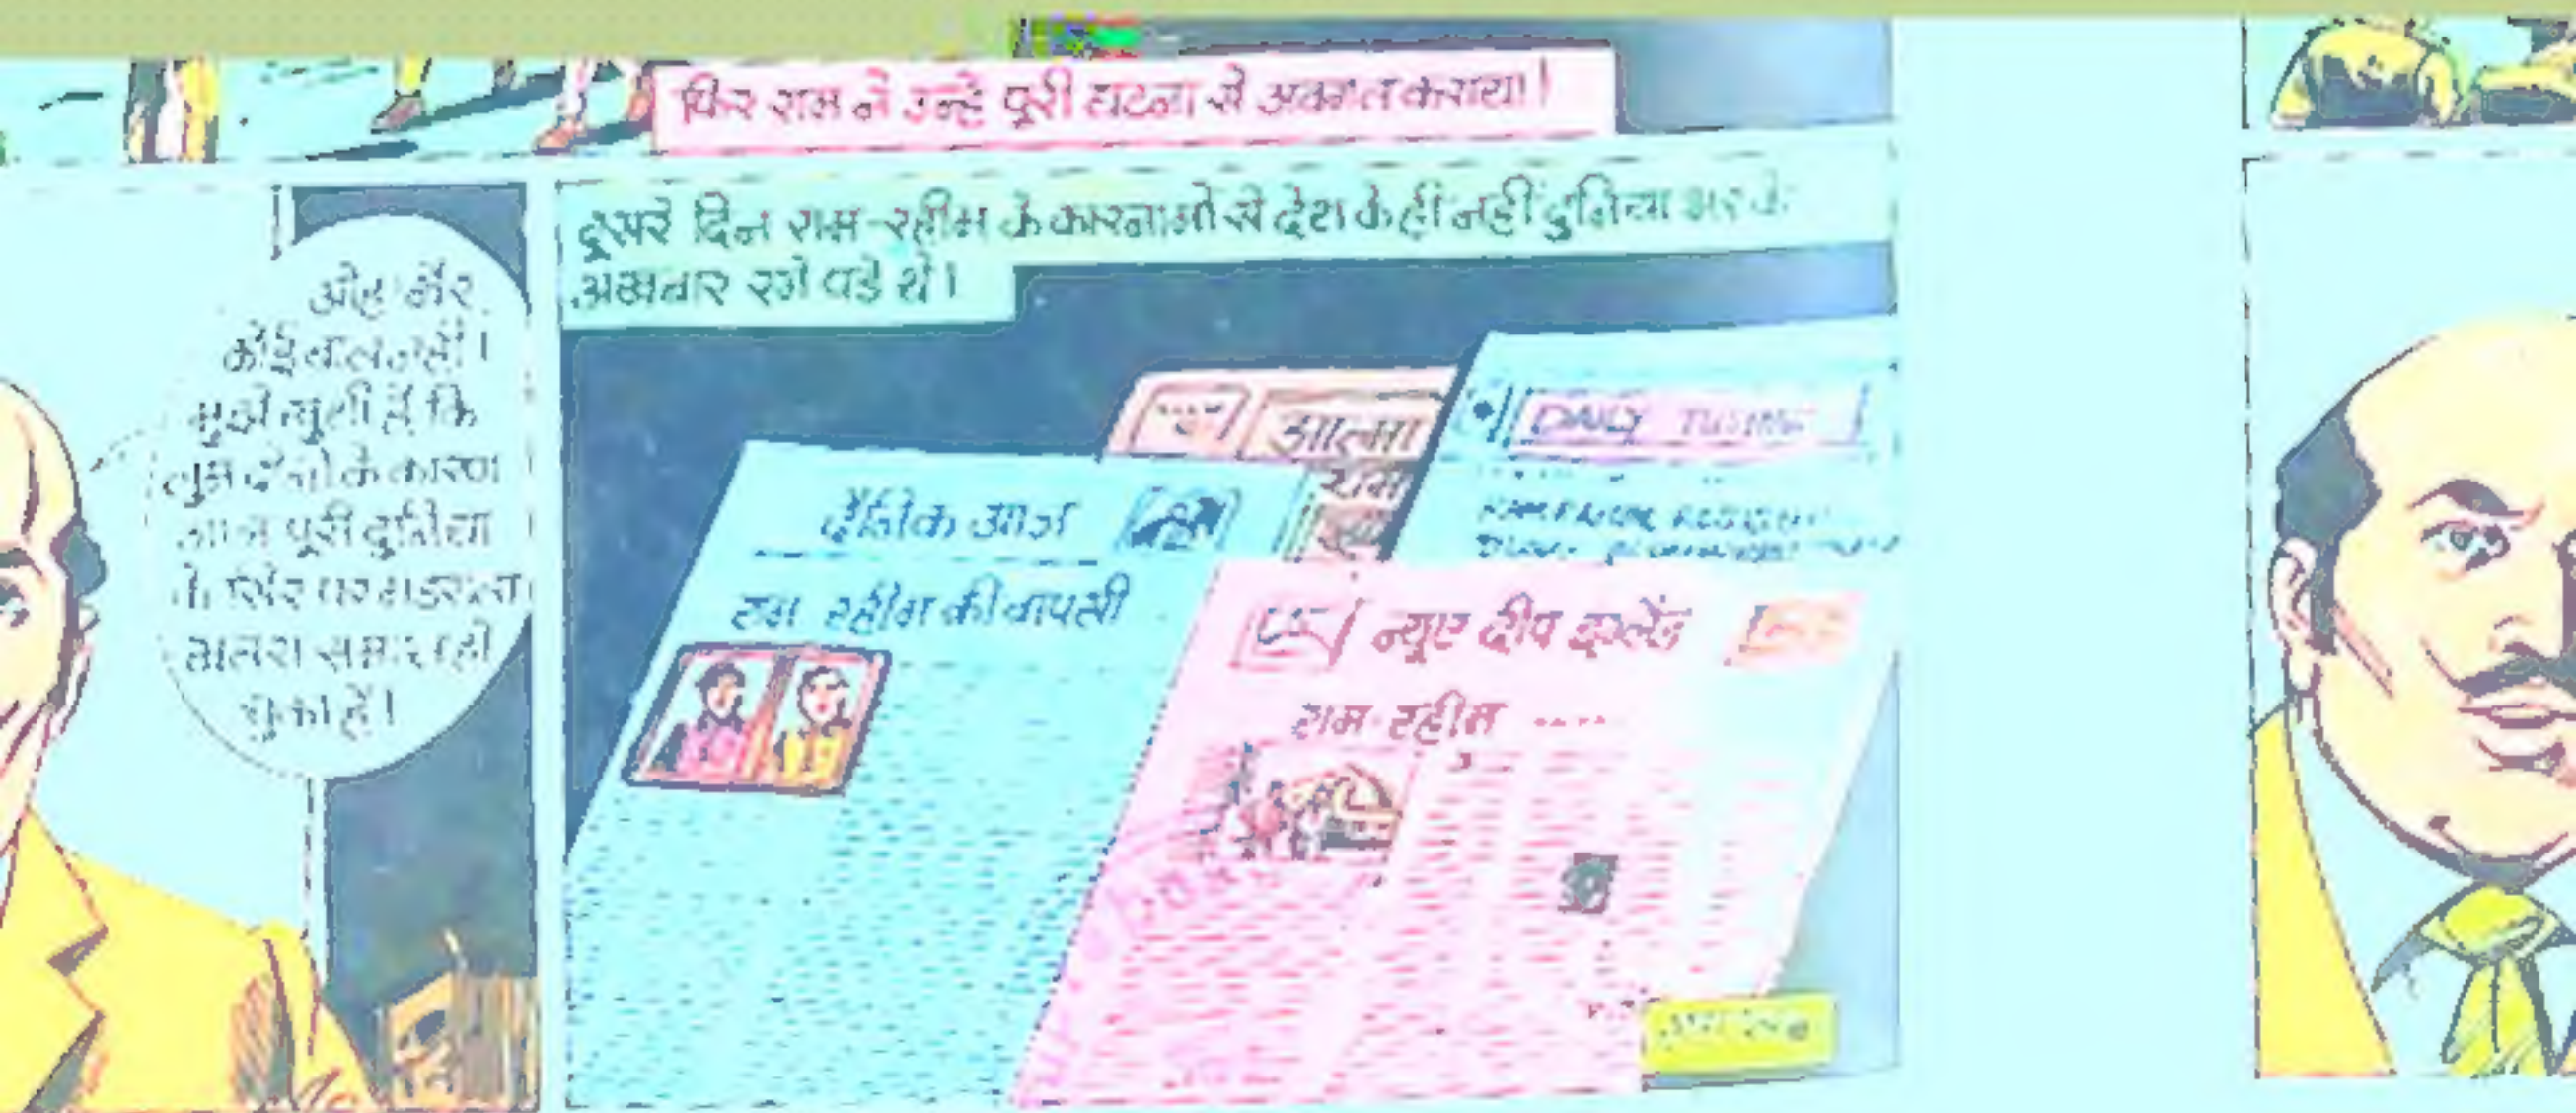 फिर राम ने उन्हे पूरी घटना से अवगत कराया!
ओह! खैर
कोई बात नहीं।
मुझे खुशी है कि
तुम दोनों के कारण
आज पूरी दुनिया
के सिर पर मंडराता
खतरा समाप्त हो
चुका है।
दूसरे दिन राम-रहीम के कारनामों से देश के ही नहीं दुनिया भर के
अखबार रंगे पडे थे।
आत्मा
राम
DAILY
दैनिक आज
राम रहीम की वापसी
न्यूए दीप इंग्लैंड
राम-रहीम ....